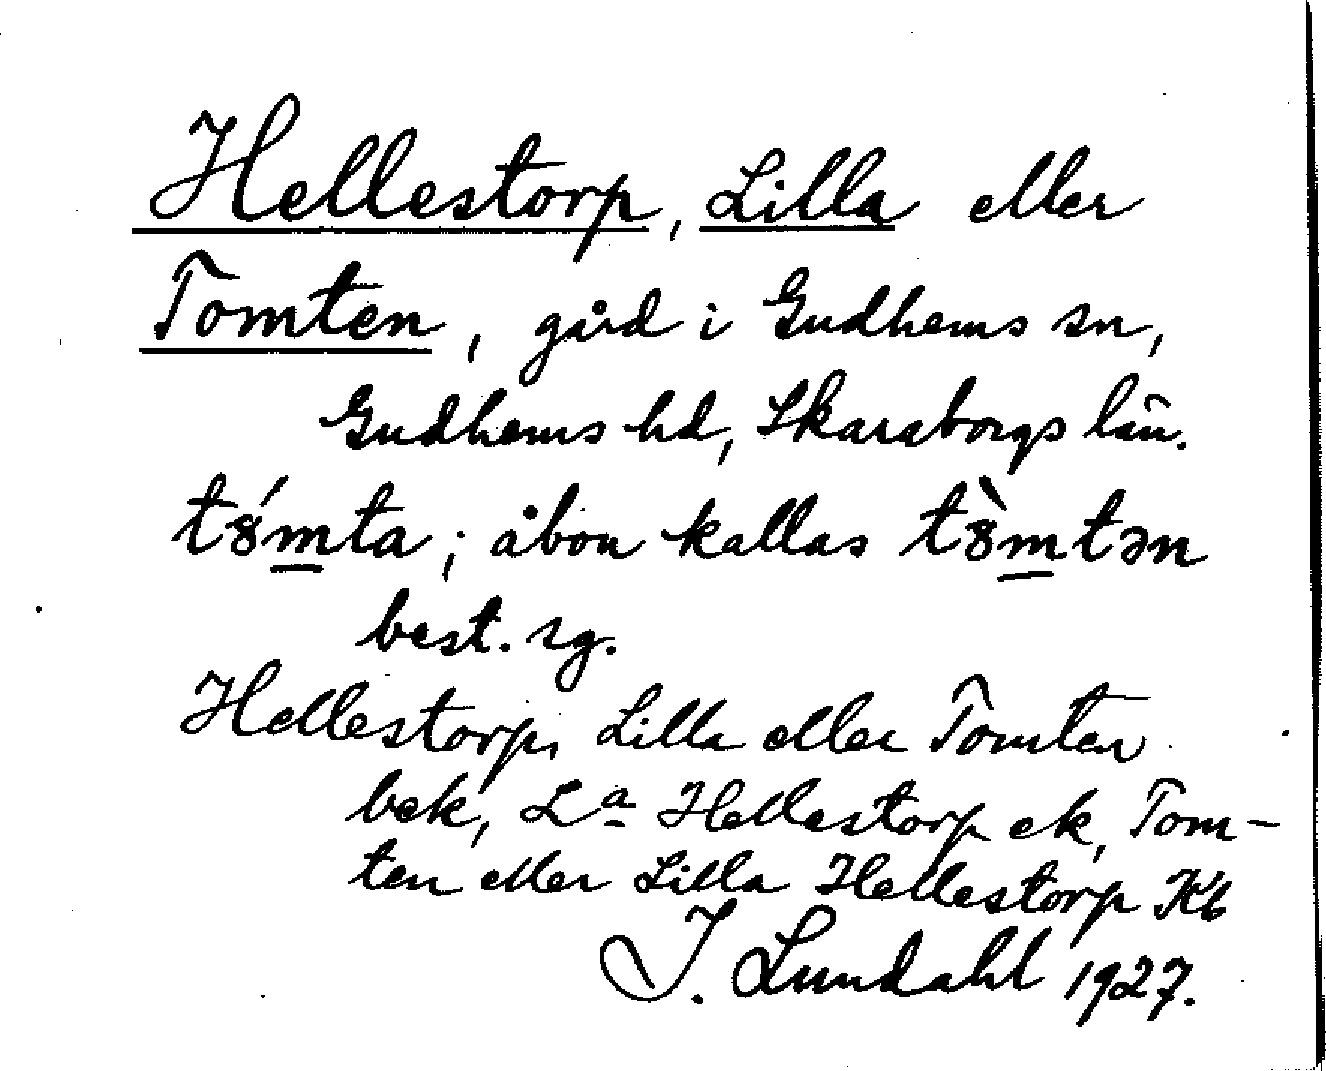 Hellestorp, Lilla eller
Tomten, gård i Gudhems sn,
Gudhems hd, Skaraborgs län.
tȣ́m̲ta; åbon kallas tȣ̀m̲tən
best. sg.
Hellestorp, Lilla eller Tomten
bek, La Hellestorp ek, Tom-
ten eller Lilla Hellestorp Kb
J. Lundahl 1927.